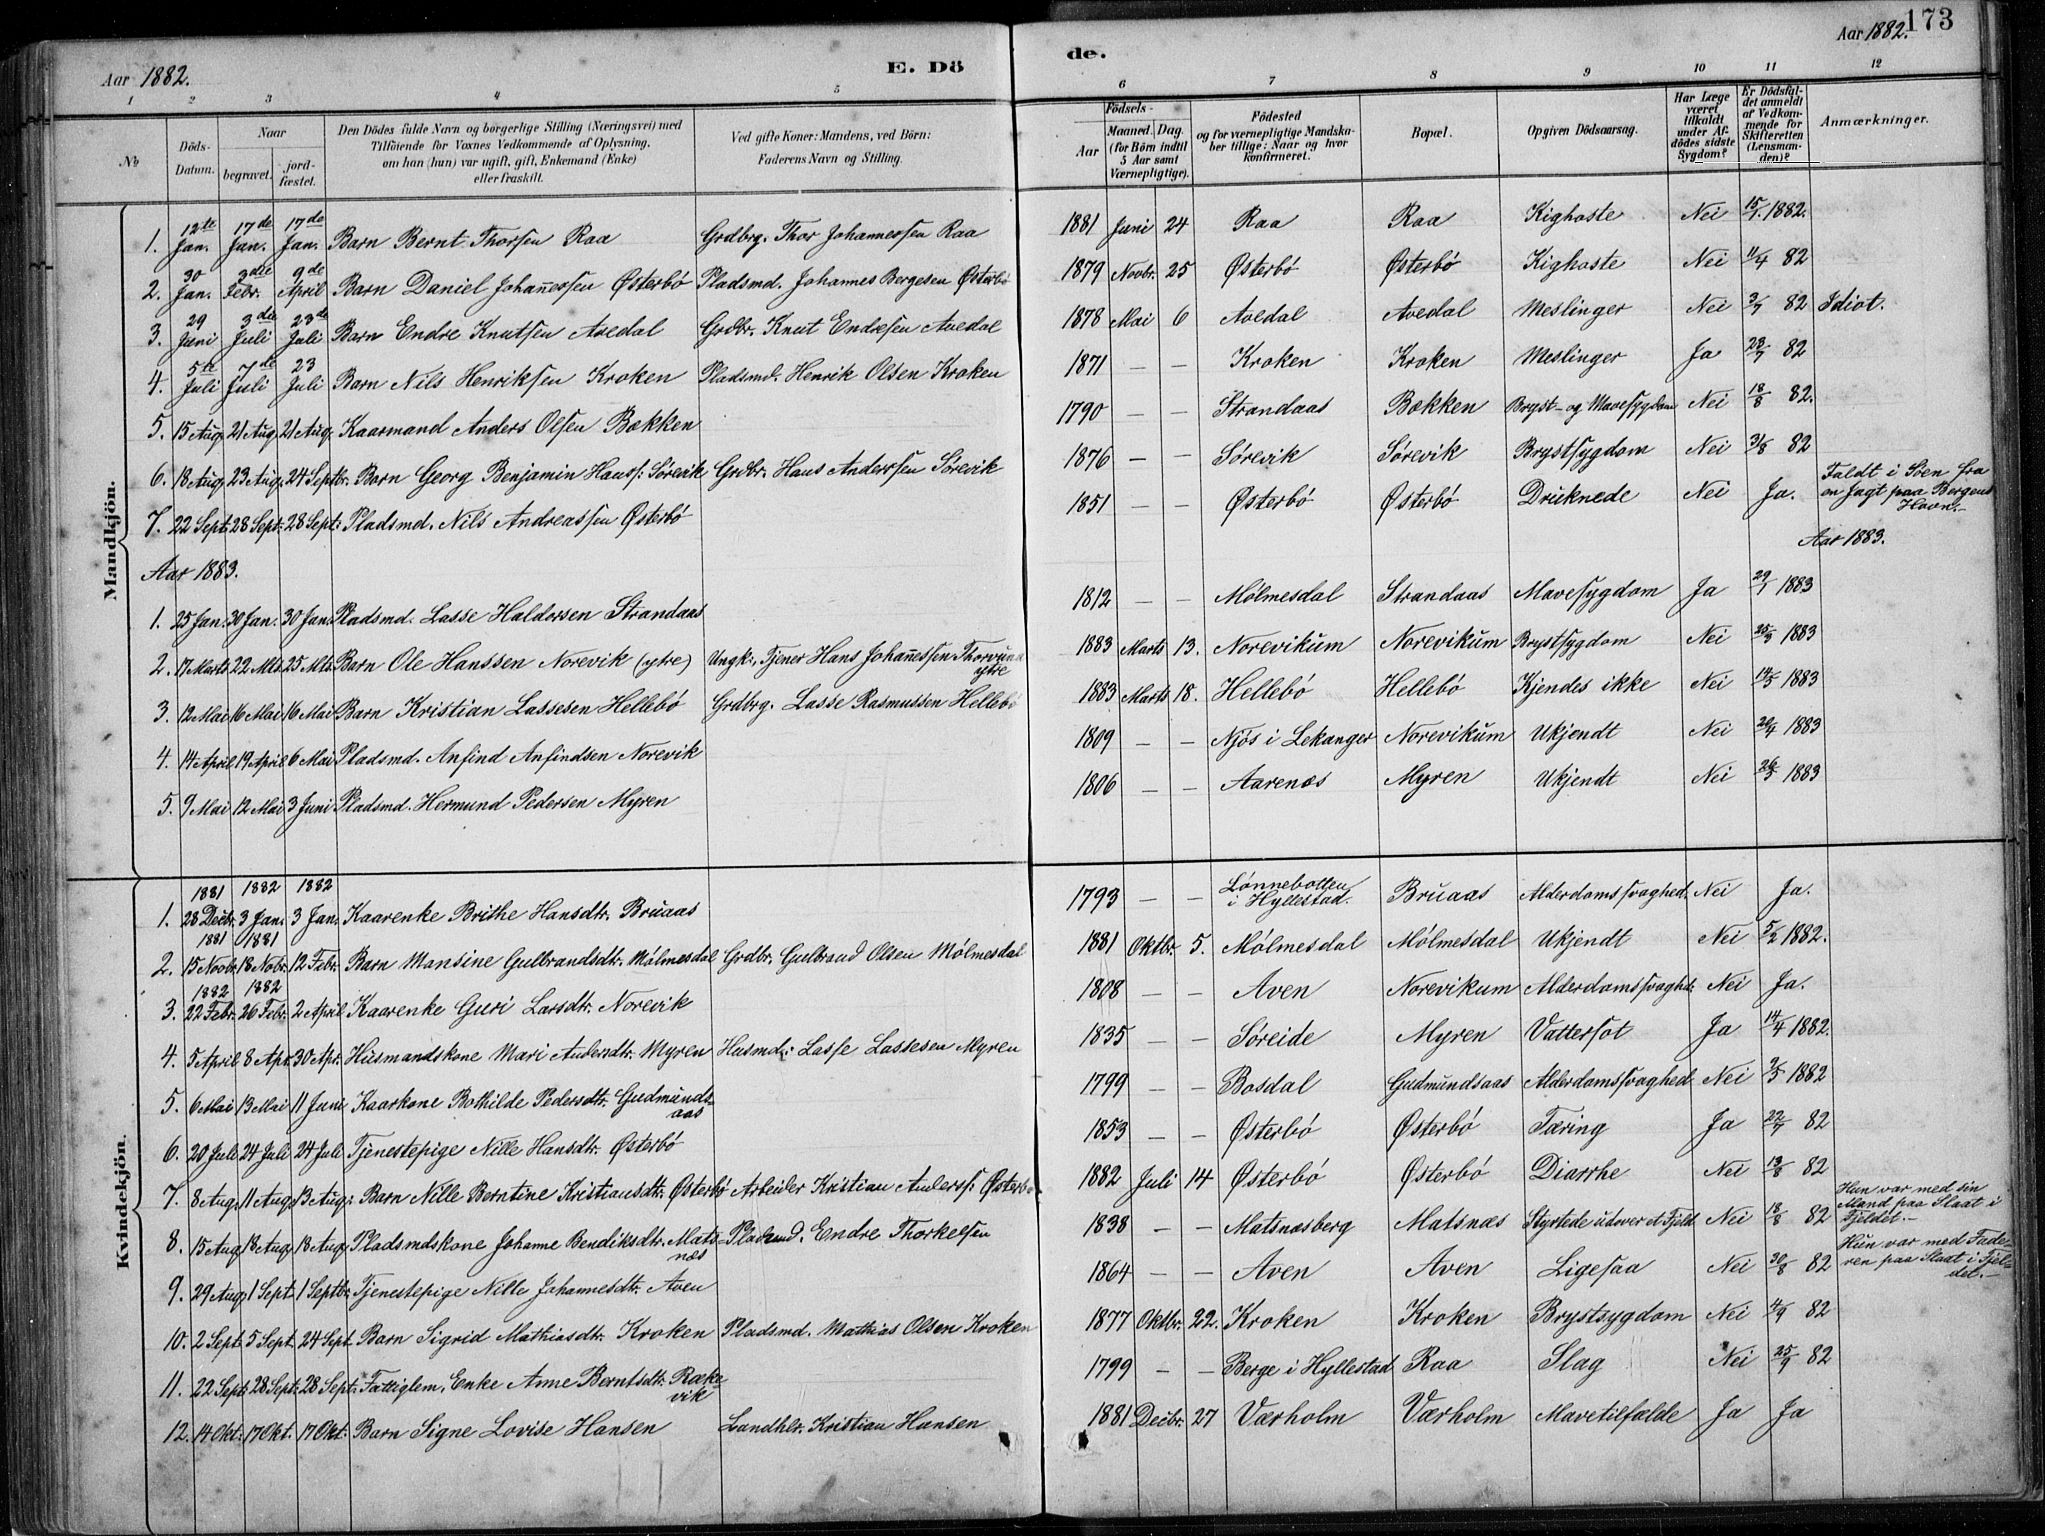 Aar 1882.
E. Dö
de.
Aar 1882.
173
1 2 3 4 5 6 7 8 9 10 11 12
No
Döds-Datum.
Naar
begravet.
jord-fæstet.
Den Dödes fulde Navn og borgerlige Stilling (Næringsvei) med
Tilföiende for Voxnes Vedkommende af Oplysning,
om han (hun) var ugift, gift, Enkemand (Enke)
eller fraskilt.
Ved gifte Koner: Mandens, ved Börn:
Faderens Navn og Stilling.
Födsels-
Aar
Maaned. Dag.
(for Börn indtil
5 Aar samt
Værnepligtige).
Födested
og for værnepligtige Mandska-
ber tillige: Naar og hvor
konfirmeret.
Bopæl.
Opgiven Dödsaarsag.
Har Læge
været
tilkaldt
under Af-
dödes sidste
Sygdom?
Er Dödsfal-
det anmeldt
af Vedkom-
mende for
Skifteretten
(Lensman-
den)?
Anmærkninger.
Mandkjön.
1. 12te Jan. 17de Jan. 17de Jan. Barn Bernt Thorsen Raa Grdbrg. Thor Johannessen Raa 1881 Juni 24 Raa Raa Kighoste Nei 15/1. 1882.
2. 30 Jan. 3die Febr. 9de April Barn Daniel Johañessen Østerbö Pladsmd. Johannes Bergesen Østerbö 1879 Novbr. 25 Østerbö Østerbö Kighoste Nei 11/4 82
3. 29 Juni 3die Juli 23de Juli Barn Endre Knutsen Avedal Grdbr. Knut Endresen Avedal 1878 Mai 6 Avedal Avedal Meslinger Nei 3/7 82 Idiot.
4. 5te Juli 7de Juli 23 Juli Barn Nils Henriksen Kroken Pladsmd. Henrik Olsen Kroken 1871 — — Kroken Kroken Meslinger Ja 23/7 82
5. 15 Aug. 21 Aug. 21 Aug. Kaarmand Anders Olsen Bækken 1790 — — Strandaas Bækken Bryst- og Mavesygdom Nei 18/8 82.
6. 18 Aug. 23 Aug. 24 Septbr. Barn Georg Benjamin Hanss: Sörevik Grdbr. Hans Anderssen Sörevik 1876 — — Sörevik Sörevik Brystsygdom Nei 31/8 82
7. 22 Sept. 28 Sept. 28 Sept: Pladsmd. Nils Andreassen Østerbö 1851 — — Østerbö Østerbö Druknede Nei Ja. Faldt i Söen fra
en Jagt paa Bergens
Havn.—
Aar 1883.
Aar 1883.
1. 25 Jan. 30 Jan. 30 Jan. Pladsmd. Lasse Haldorsen Strandaas 1812 — — Mölmesdal Strandaas Mavesygdom Ja 29/1 1883
2. 17 Marts 22 Mts. 25 Mts. Barn Ole Hanssen Norevik (ytre) Ungk:, Tjener Hans Johañessen
ytre 1883 Marts 13. Norevikum Norevikum Brystsygdom Nei 25/3 1883
3. 12 Mai 16 Mai 16 Mai Barn Kristian Lassesen Hellebö Grdbrg. Lasse Rasmussen Hellebö 1883 Marts 18. Hellebö Hellebö Kjendes ikke Nei 14/5 1883
4. 14 April 19 April 6 Mai Pladsmd. Anfind Anfindsen Norevik 1809 — — Njös i Lekanger Norevikum Ukjendt Nei 20/4 1883
5. 9 Mai 12 Mai 3 Juni Pladsmd. Hermund Pedersen Myren 1806 — — Aarenæs Myren Ukjendt Nei 26/5 1883
Kvindekjön.
1881 1882 1882
1. 28 Decbr. 3 Jan. 3 Jan. Kaarenke Brithe Hansdtr. Bruaas 1793 — — Lönnebotten
i Hyllestad. Bruaas Alderdomssvaghed. Nei Ja.
1881 1881
2. 15 Novbr. 18 Nobr. 12 Febr. Barn Mansine Gulbrandsdtr. Mölmesdal Grdbr. Gulbrand Olsen Mölmesdal 1881 Oktbr. 5. Mölmesdal Mölmesdal Ukjendt Nei 5/2 1882.
1882 1882
3. 22 Febr. 26 Febr. 2 April Kaarenke Guri Larsdtr. Norevik 1808 — — Aven Norevikum Alderdomssvaghd. Nei Ja.
4. 5 April 8 Apr. 30 Apr. Husmandskone Mari Andersdtr. Myren Husmd: Lasse Lassesen Myren 1835 — — Söreide Myren Vattersot Ja 14/4 1882.
5. 6 Mai 13 Mai 11 Juni Kaarkone Bothilde Pedersdtr. Gudmunds-
aas 1799 — — Bosdal Gudmundsaas Alderdomssvaghed Nei 9/5 1882
6. 20 Juli 24 Juli 24 Juli Tjenestepige Nille Hansdtr. Østerbö 1853 — — Østerbö Østerbö Tæring Ja 22/7 82
7. 8 Aug. 11 Aug. 13 Aug: Barn Nille Berntine Kristiansdtr. Østerbö Arbeider Kristian Anderss: Østerbö 1882 Juli 14 Østerbö Østerbö Diarrhe Nei 13/8 82
8. 15 Aug. 18 Aug. 18 Aug. Pladsmdskone Johanne Bendiksdtr. Mats-
næs Pladsmd. Endre Thorkelsen 1838 — — Matsnæsberg Matsnæs Styrtede udover et Fjeld Nei 18/8 82 Hun var med sin
Mand paa Slaat i
Fjeldet.—
9. 29 Aug. 1 Sept. 1 Septbr. Tjenestepige Nille Johannesdtr. Aven 1864 — — Aven Aven Ligesaa Nei 30/8 82 Hun var med Fade-
ren paa Slaat i Fjel-
det.—
10. 2 Sept. 5 Sept. 24 Sept. Barn Sigrid Mathiasdtr. Kroken Pladsmd. Mathias Olsen Kroken 1877 Oktbr. 22. Kroken Kroken Brystsygdom Nei 4/9 82
11. 22 Sept. 28 Sept. 28 Sept. Fattiglem, Enke Anne Berntsdtr. Ræke-
vik 1799 — — Berge i Hyllestad Raa Slag Nei 25/9 82
12. 14 Okt. 17 Okt. 17 Okt. Barn Signe Lovise Hansen Landhlr. Kristian Hansen 1881 Decbr. 27 Værholm Værholm Mavetilfælde Ja Ja